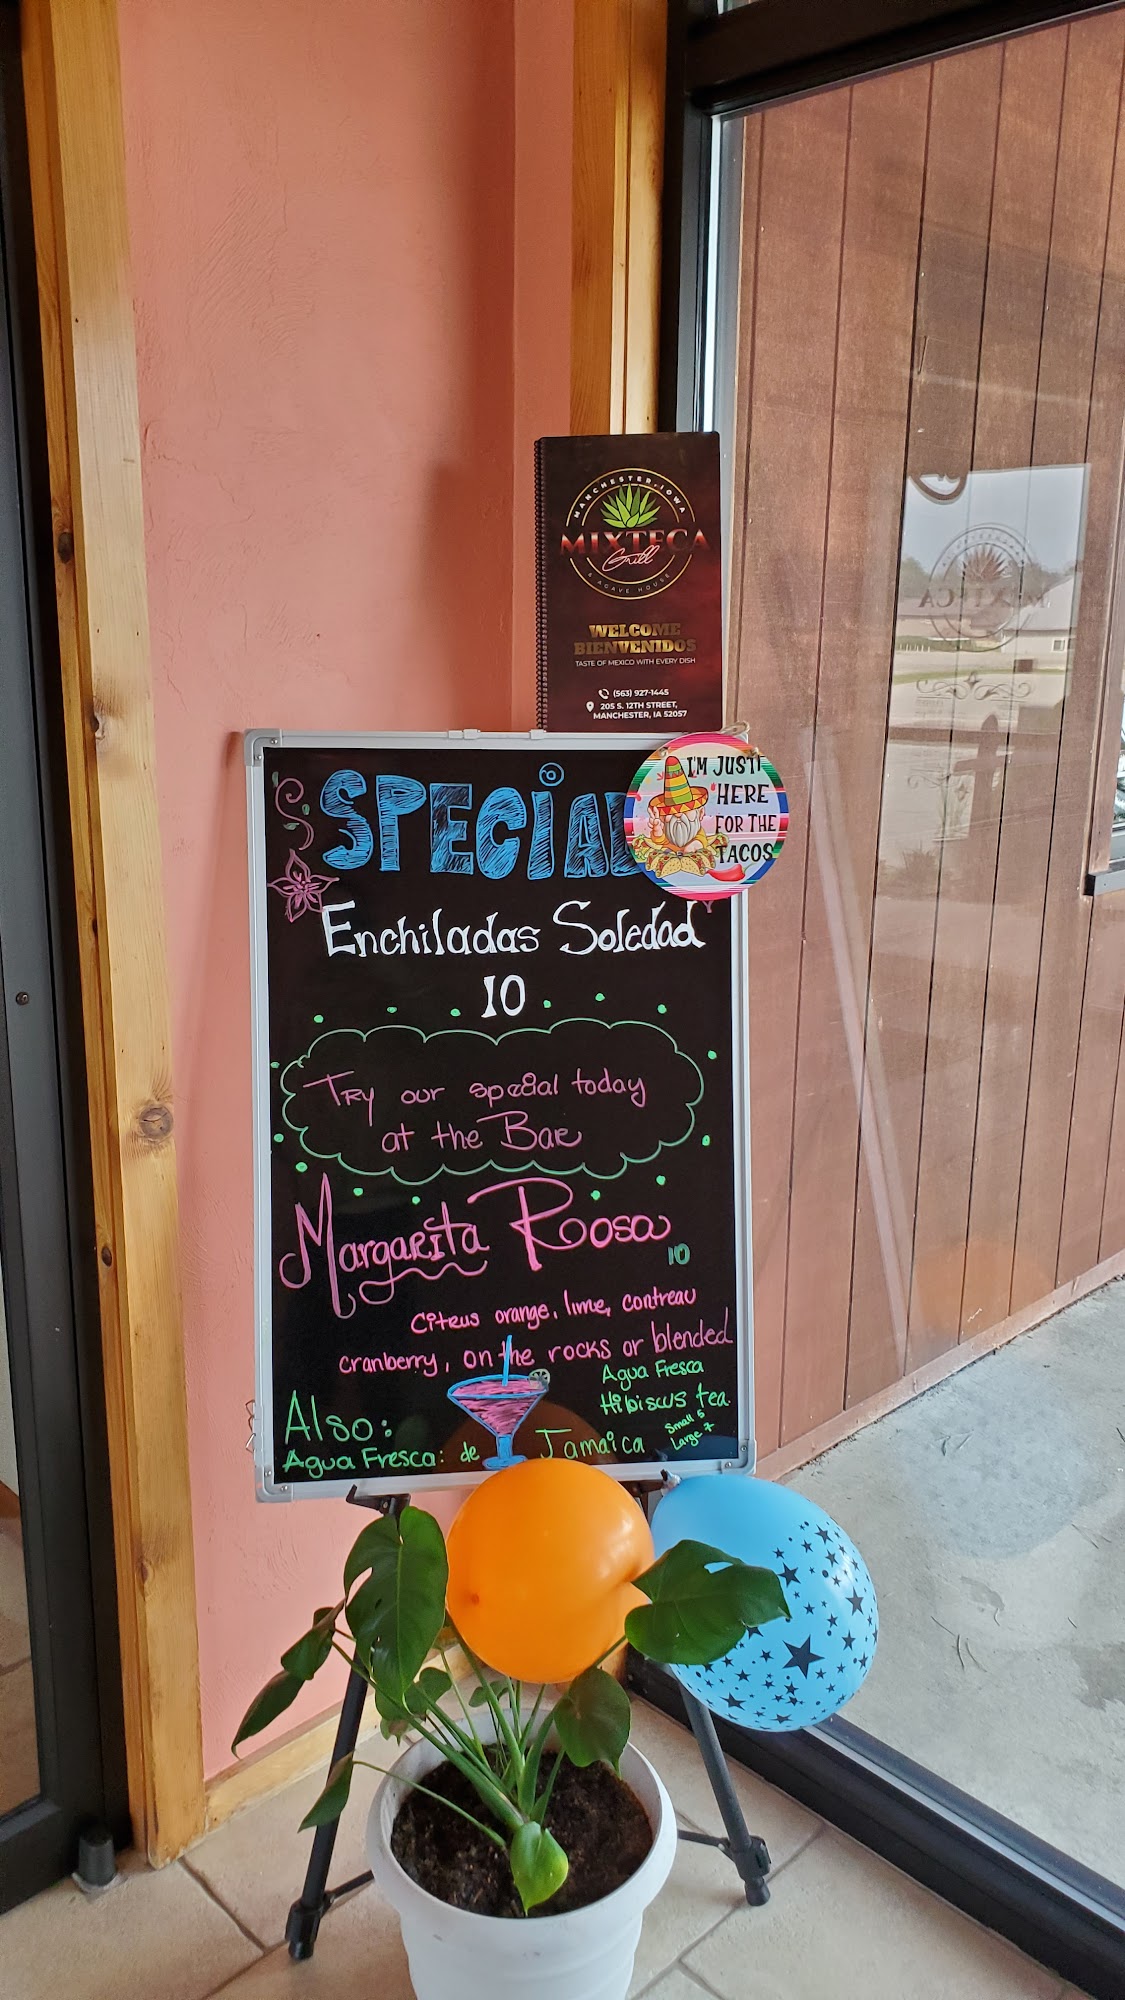 MANCHESTER, IOWA
MIXTECA
Grill
& AGAVE HOUSE
WELCOME
BIENVENIDOS
TASTE OF MEXICO WITH EVERY DISH
(563) 927-1445
205 S. 12TH STREET,
MANCHESTER, IA 52057
SPECIAL
I'M JUST
HERE
FOR THE
TACOS
Enchiladas Soledad
10
Try our special today
at the Bar
Margarita Rosa
10
Citrus orange, lime, contreau
cranberry, on the rocks or blended
Agua Fresca
Hibiscus tea.
Small 5
Large 7
Also:
Agua Fresca: de Jamaica
MIXTECA